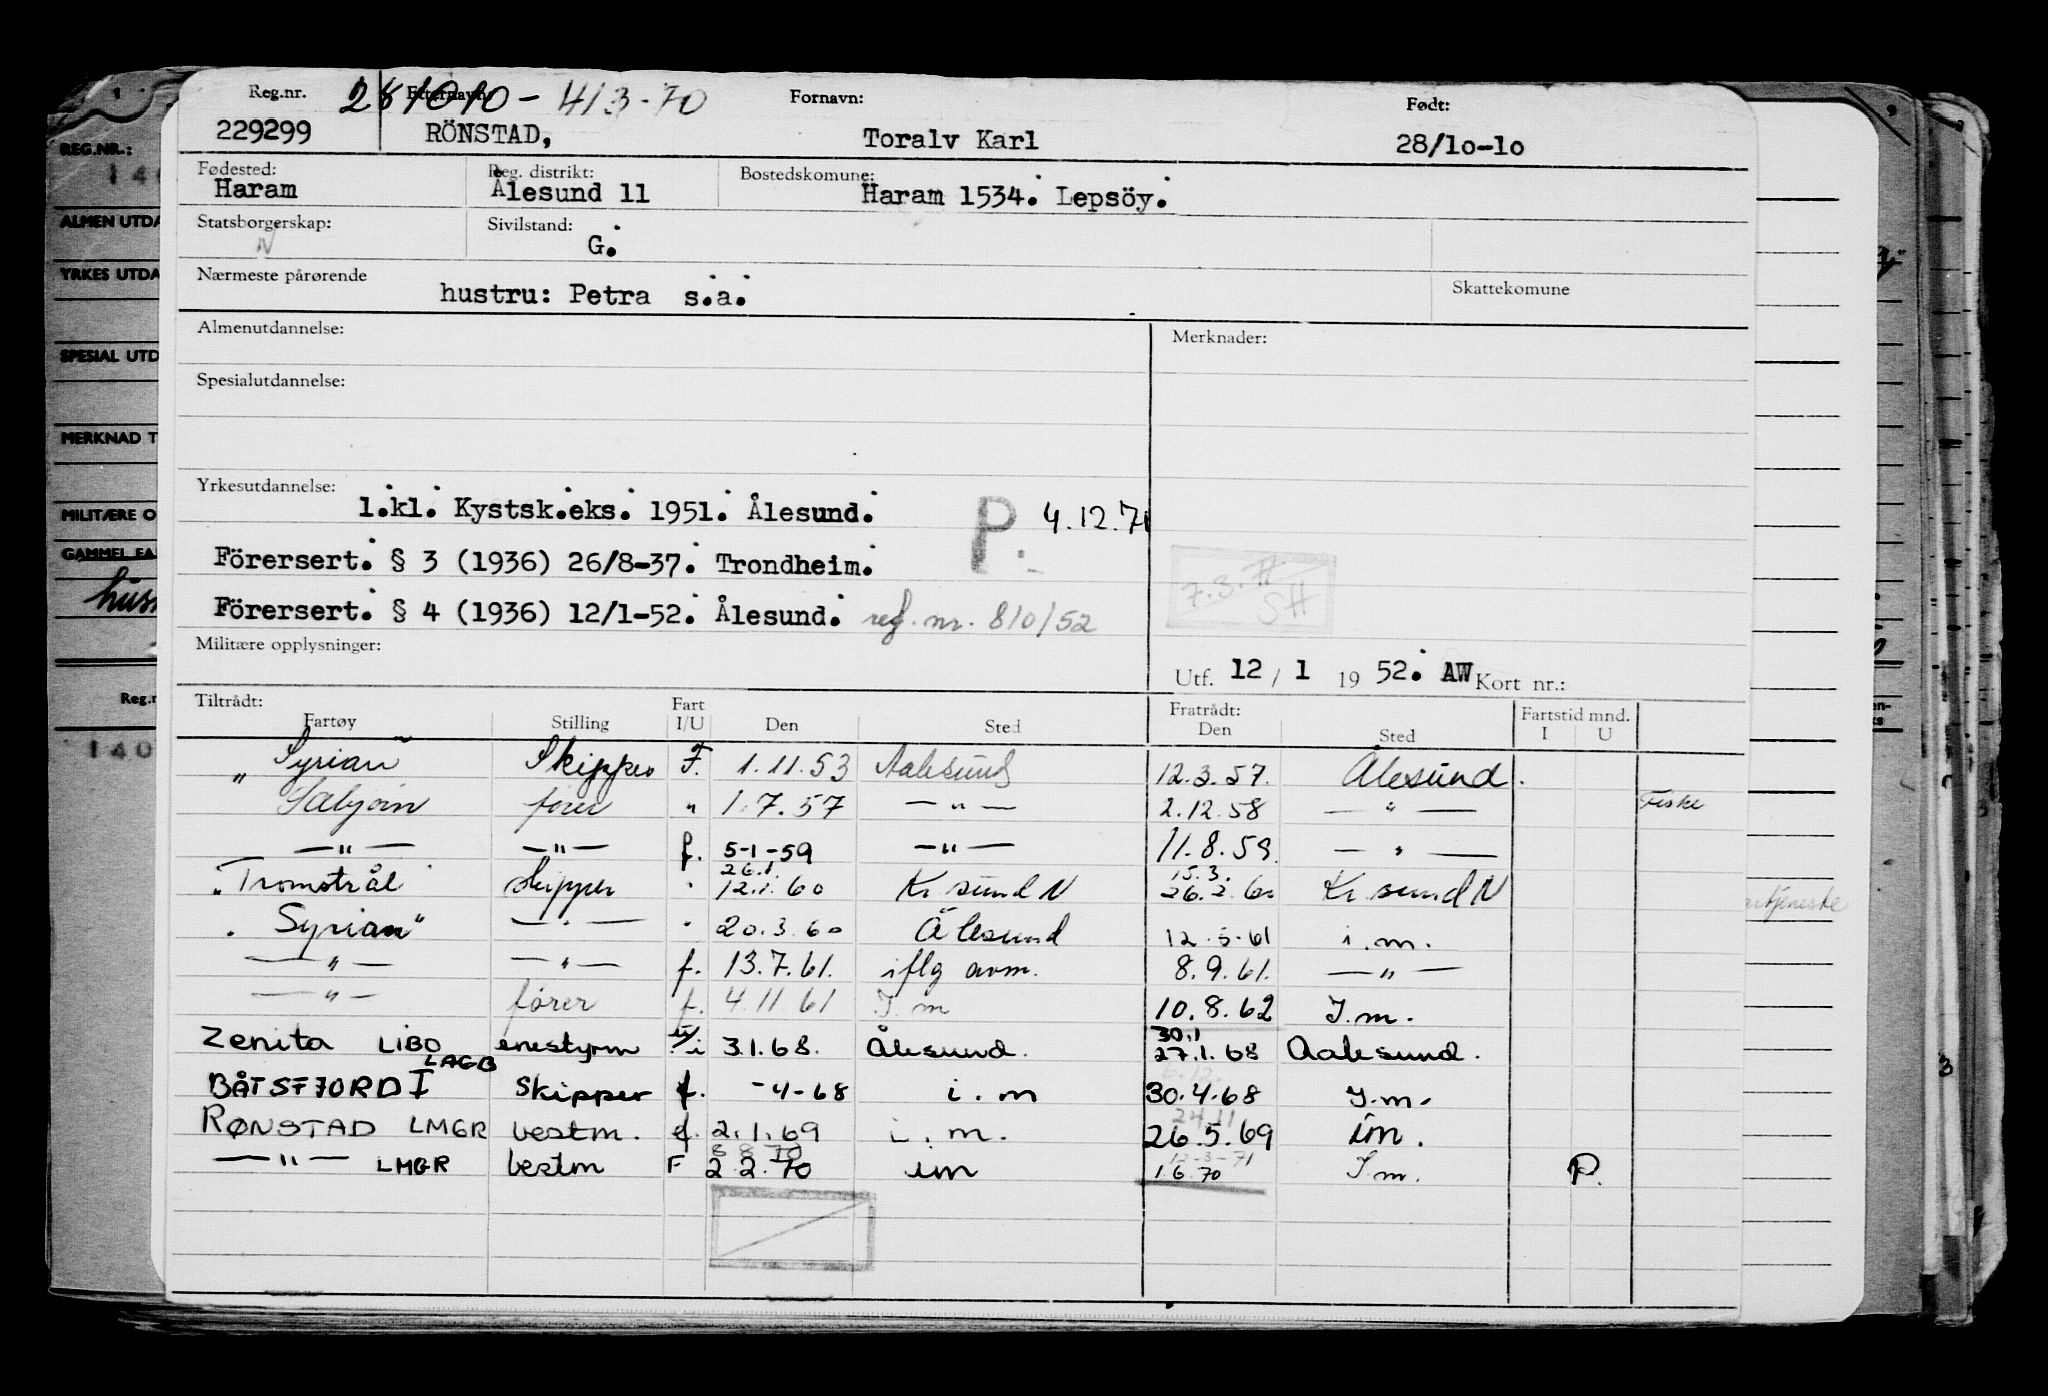 Reg.nr. Etternavn: 281010 - 413-70 Fornavn: Født:
229299 RÖNSTAD, Toralv Karl 28/10-10
Fødested: Reg. distrikt: Bostedskomune:
Haram Ålesund 11 Haram 1534. Lepsöy.
Statsborgerskap: Sivilstand:
N G.
Nærmeste pårørende Skattekomune
hustru: Petra s.a.
Almenutdannelse: Merknader:
Spesialutdannelse:
Yrkesutdannelse:
1.kl. Kystsk.eks. 1951. Ålesund. P. 4.12.71
Förersert. § 3 (1936) 26/8-37. Trondheim.
7.3. SH
Förersert. § 4 (1936) 12/1-52. Ålesund. reg. nr. 810/52
Militære opplysninger:
Utf. 12 / 1 19 52. AW Kort nr.:
Tiltrådt: Fart Fratrådt: Fartstid mnd.
Fartøy Stilling I/U Den Sted Den Sted I U
"Syrian Skipper F. 1.11.53 Aalesund 12.3.57. Ålesund.
Sæbjørn fører " 1.7.57 — " — 2.12.58 — " — Fiske
— " — — " — f. 5-1-59 — " — 11.8.59. — " —
26.1. 15.3.
"Tromstrål skipper " 12.1.60 Kr sund N 26.2.60 Kr. sund N
"Syrian" — " — " 20.3.60 Ålesund 12.5.61 i.m.
— " — — " — f. 13.7.61. iflg avm. 8.9.61. — " —
— " — fører f. 4.11.61 I.m 10.8.62 I.m.
30.1
Zenita LIBO enestyrm i 3.1.68. Ålesund. 27.1.68 Aalesund.
LAGB
BÅTSFJORD I Skipper f. -4-68 i.m 30.4.68 I.m.
24.11
RØNSTAD LMGR bestm. f. 2.1.69 i.m. 26.5.69 im.
8 8 70 12-3-71
— " — LMGR bestm F 2 2.70 im 1 6.70 I.m. P.
REG.NR.:
140
ALMEN UTDA
YRKES UTDA
SPESIAL UTD
MERKNAD T
MILITÆRE O
GAMMEL FA
Reg.n
140